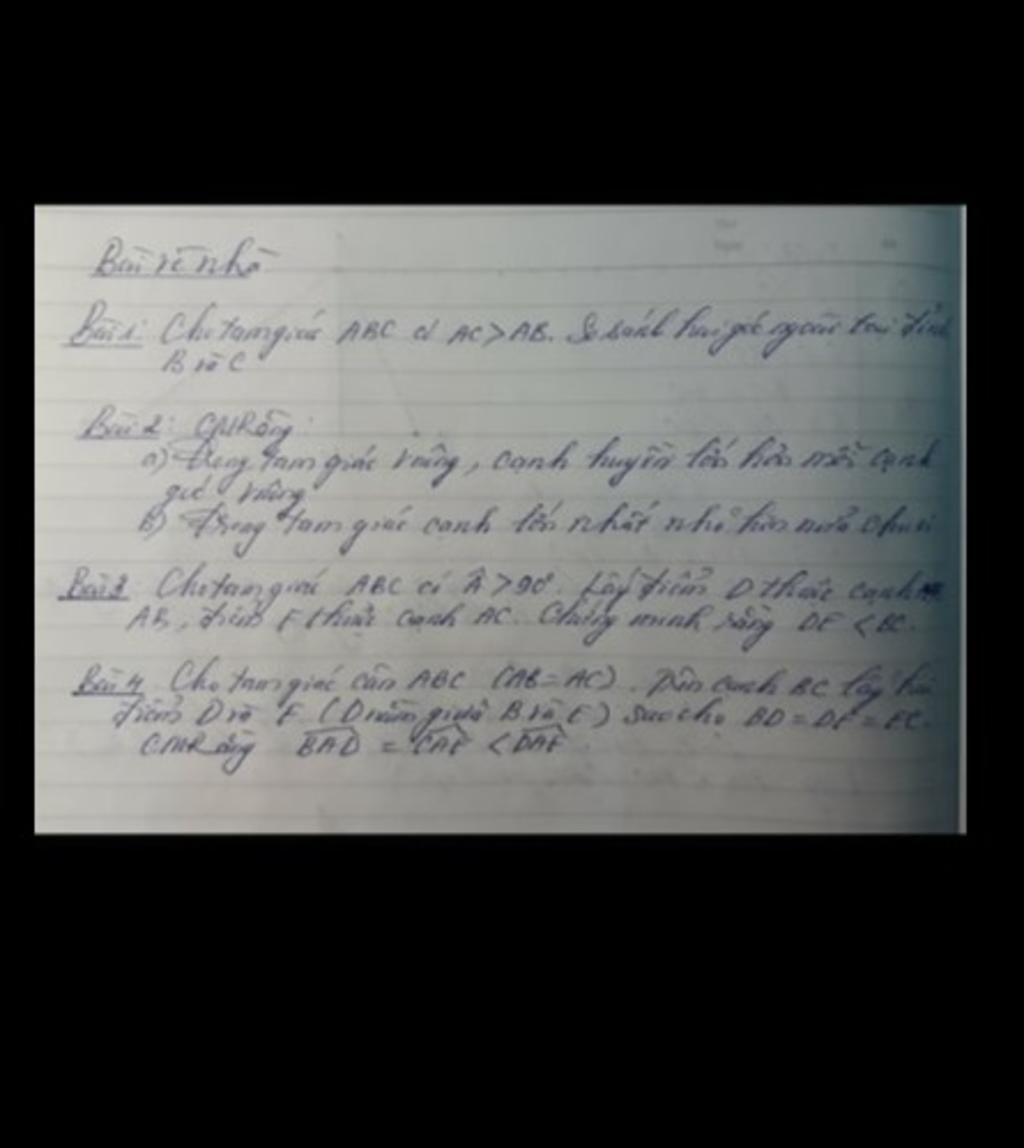 Bài về nhà
Bài 1: Cho tam giác ABC có AC > AB. So sánh hai góc ngoài tại đỉnh
B và C
Bài 2: CMRằng:
a) Trong tam giác vuông, cạnh huyền lớn hơn mỗi cạnh
góc vuông
b) Trong tam giác cạnh lớn nhất nhỏ hơn nửa chu vi
Bài 3 Cho tam giác ABC có Â > 90°. Lấy điểm D thuộc cạnh
AB, điểm E thuộc cạnh AC. Chứng minh rằng DE < BC.
Bài 4 Cho tam giác cân ABC (AB = AC). Trên cạnh BC lấy hai
điểm D và E (D nằm giữa B và E) sao cho BD = DE = EC.
CMRằng \widehat{BAD} = \widehat{CAE} < \widehat{DAE}.